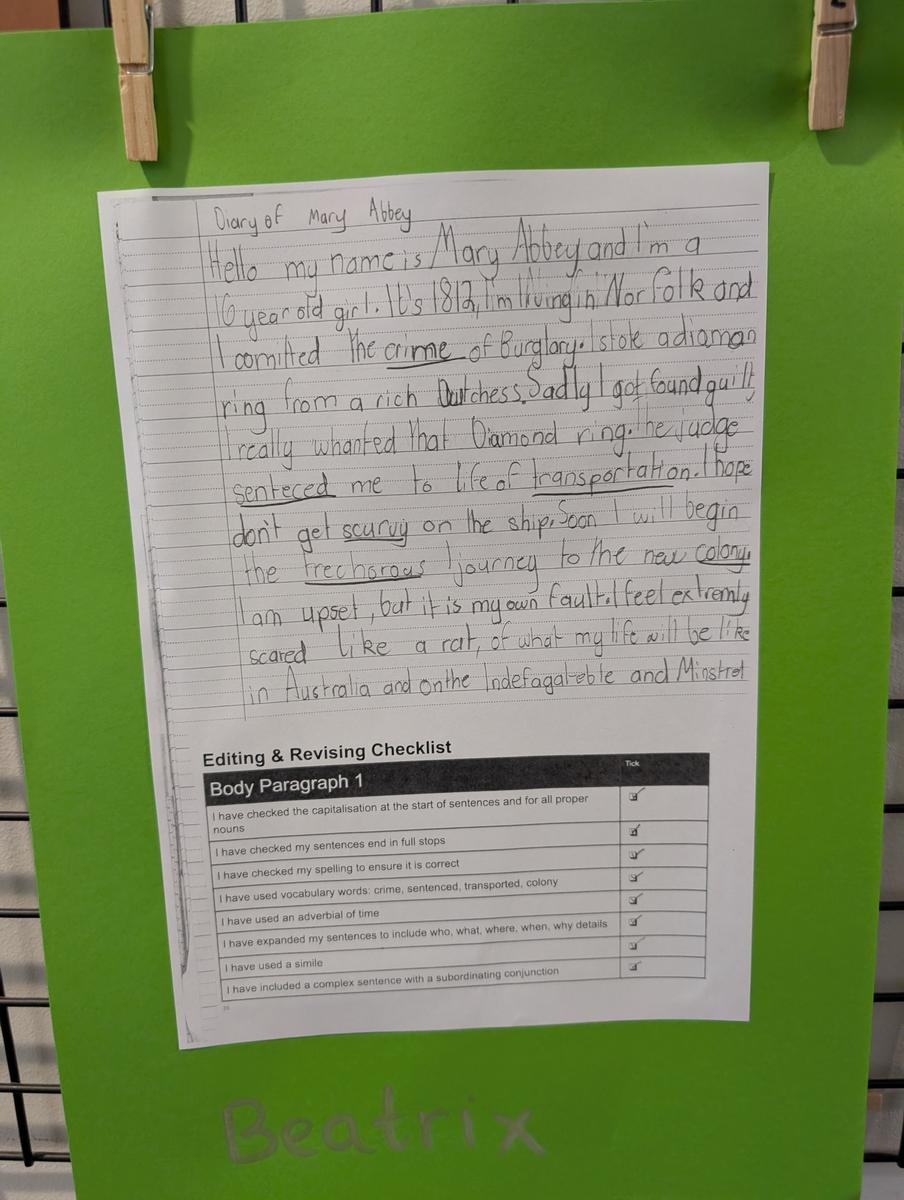 Diary of Mary Abbey
Hello my name is Mary Abbey and I'm a
16 year old girl. It's 1812, I'm living in Norfolk and
I comitted the crime of Burglary. I stole a diaman
ring from a rich Dutchess. Sadly I got found guilt
I really whanted that Diamond ring. the judge
senteced me to life of transportation. I hope
don't get scurvy on the ship. Soon I will begin
the trechorous journey to the new colony.
I am upset, but it is my own fault. I feel extremly
scared like a rat, of what my life will be like
in Australia and on the Indefagateble and Minstrel
Editing & Revising Checklist
Body Paragraph 1
Tick
I have checked the capitalisation at the start of sentences and for all proper
nouns
I have checked my sentences end in full stops
I have checked my spelling to ensure it is correct
I have used vocabulary words: crime, sentenced, transported, colony
I have used an adverbial of time
I have expanded my sentences to include who, what, where, when, why details
I have used a simile
I have included a complex sentence with a subordinating conjunction
Beatrix